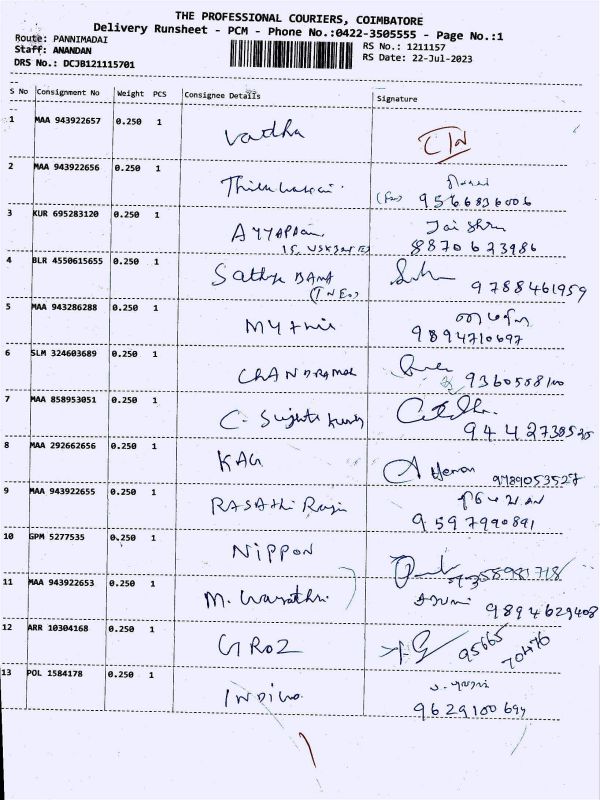 THE PROFESSIONAL COURIERS, COIMBATORE
Delivery Runsheet - PCM - Phone No.:0422-3505555 - Page No.:1
Route: PANNIMADAI
Staff: ANANDAN
DRS No.: DCJB121115701
RS No.: 1211157
RS Date: 22-Jul-2023
S No Consignment No Weight PCS Consignee Details Signature
1 MAA 943922657 0.250 1
2 MAA 943922656 0.250 1
(for) 9566836006
3 KUR 695283120 0.250 1 AYYAPPAN Jai Shri
8870673986
4 BLR 4550615655 0.250 1 Sathya BAMA
(TNEB) 9788461959
5 MAA 943286288 0.250 1
9894710697
6 SLM 324603689 0.250 1 CHANDRAMOH
9360558100
7 MAA 858953051 0.250 1 C.
9442730520
8 MAA 292662656 0.250 1 KAG
9789053527
9 MAA 943922655 0.250 1 RASAthi
9597990891
10 GPM 5277535 0.250 1 NIPPON
11 MAA 943922653 0.250 1 M. Gayathri
9894629408
12 ARR 10304168 0.250 1 GROZ 95665
70476
13 POL 1584178 0.250 1
9629100699